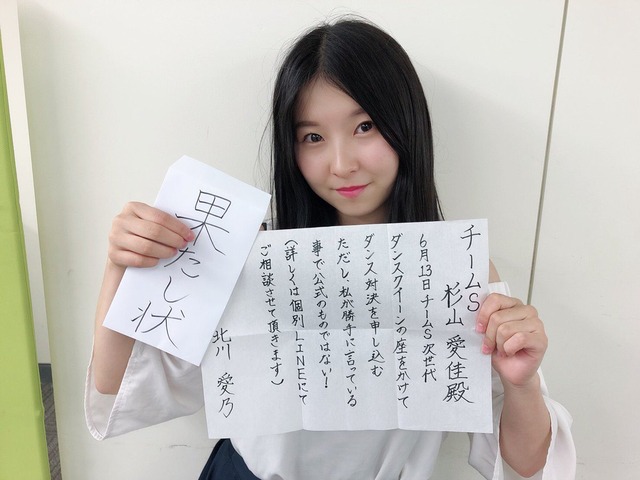 果たし状
チームS
杉山 愛佳殿
6月13日チームS次世代
ダンスクイーンの座をかけて
ダンス対決を申し込む
ただし、私が勝手に言っている
事で公式のものではない!
(詳しくは個別LINEにて
ご相談させて頂きます)
北川 愛乃